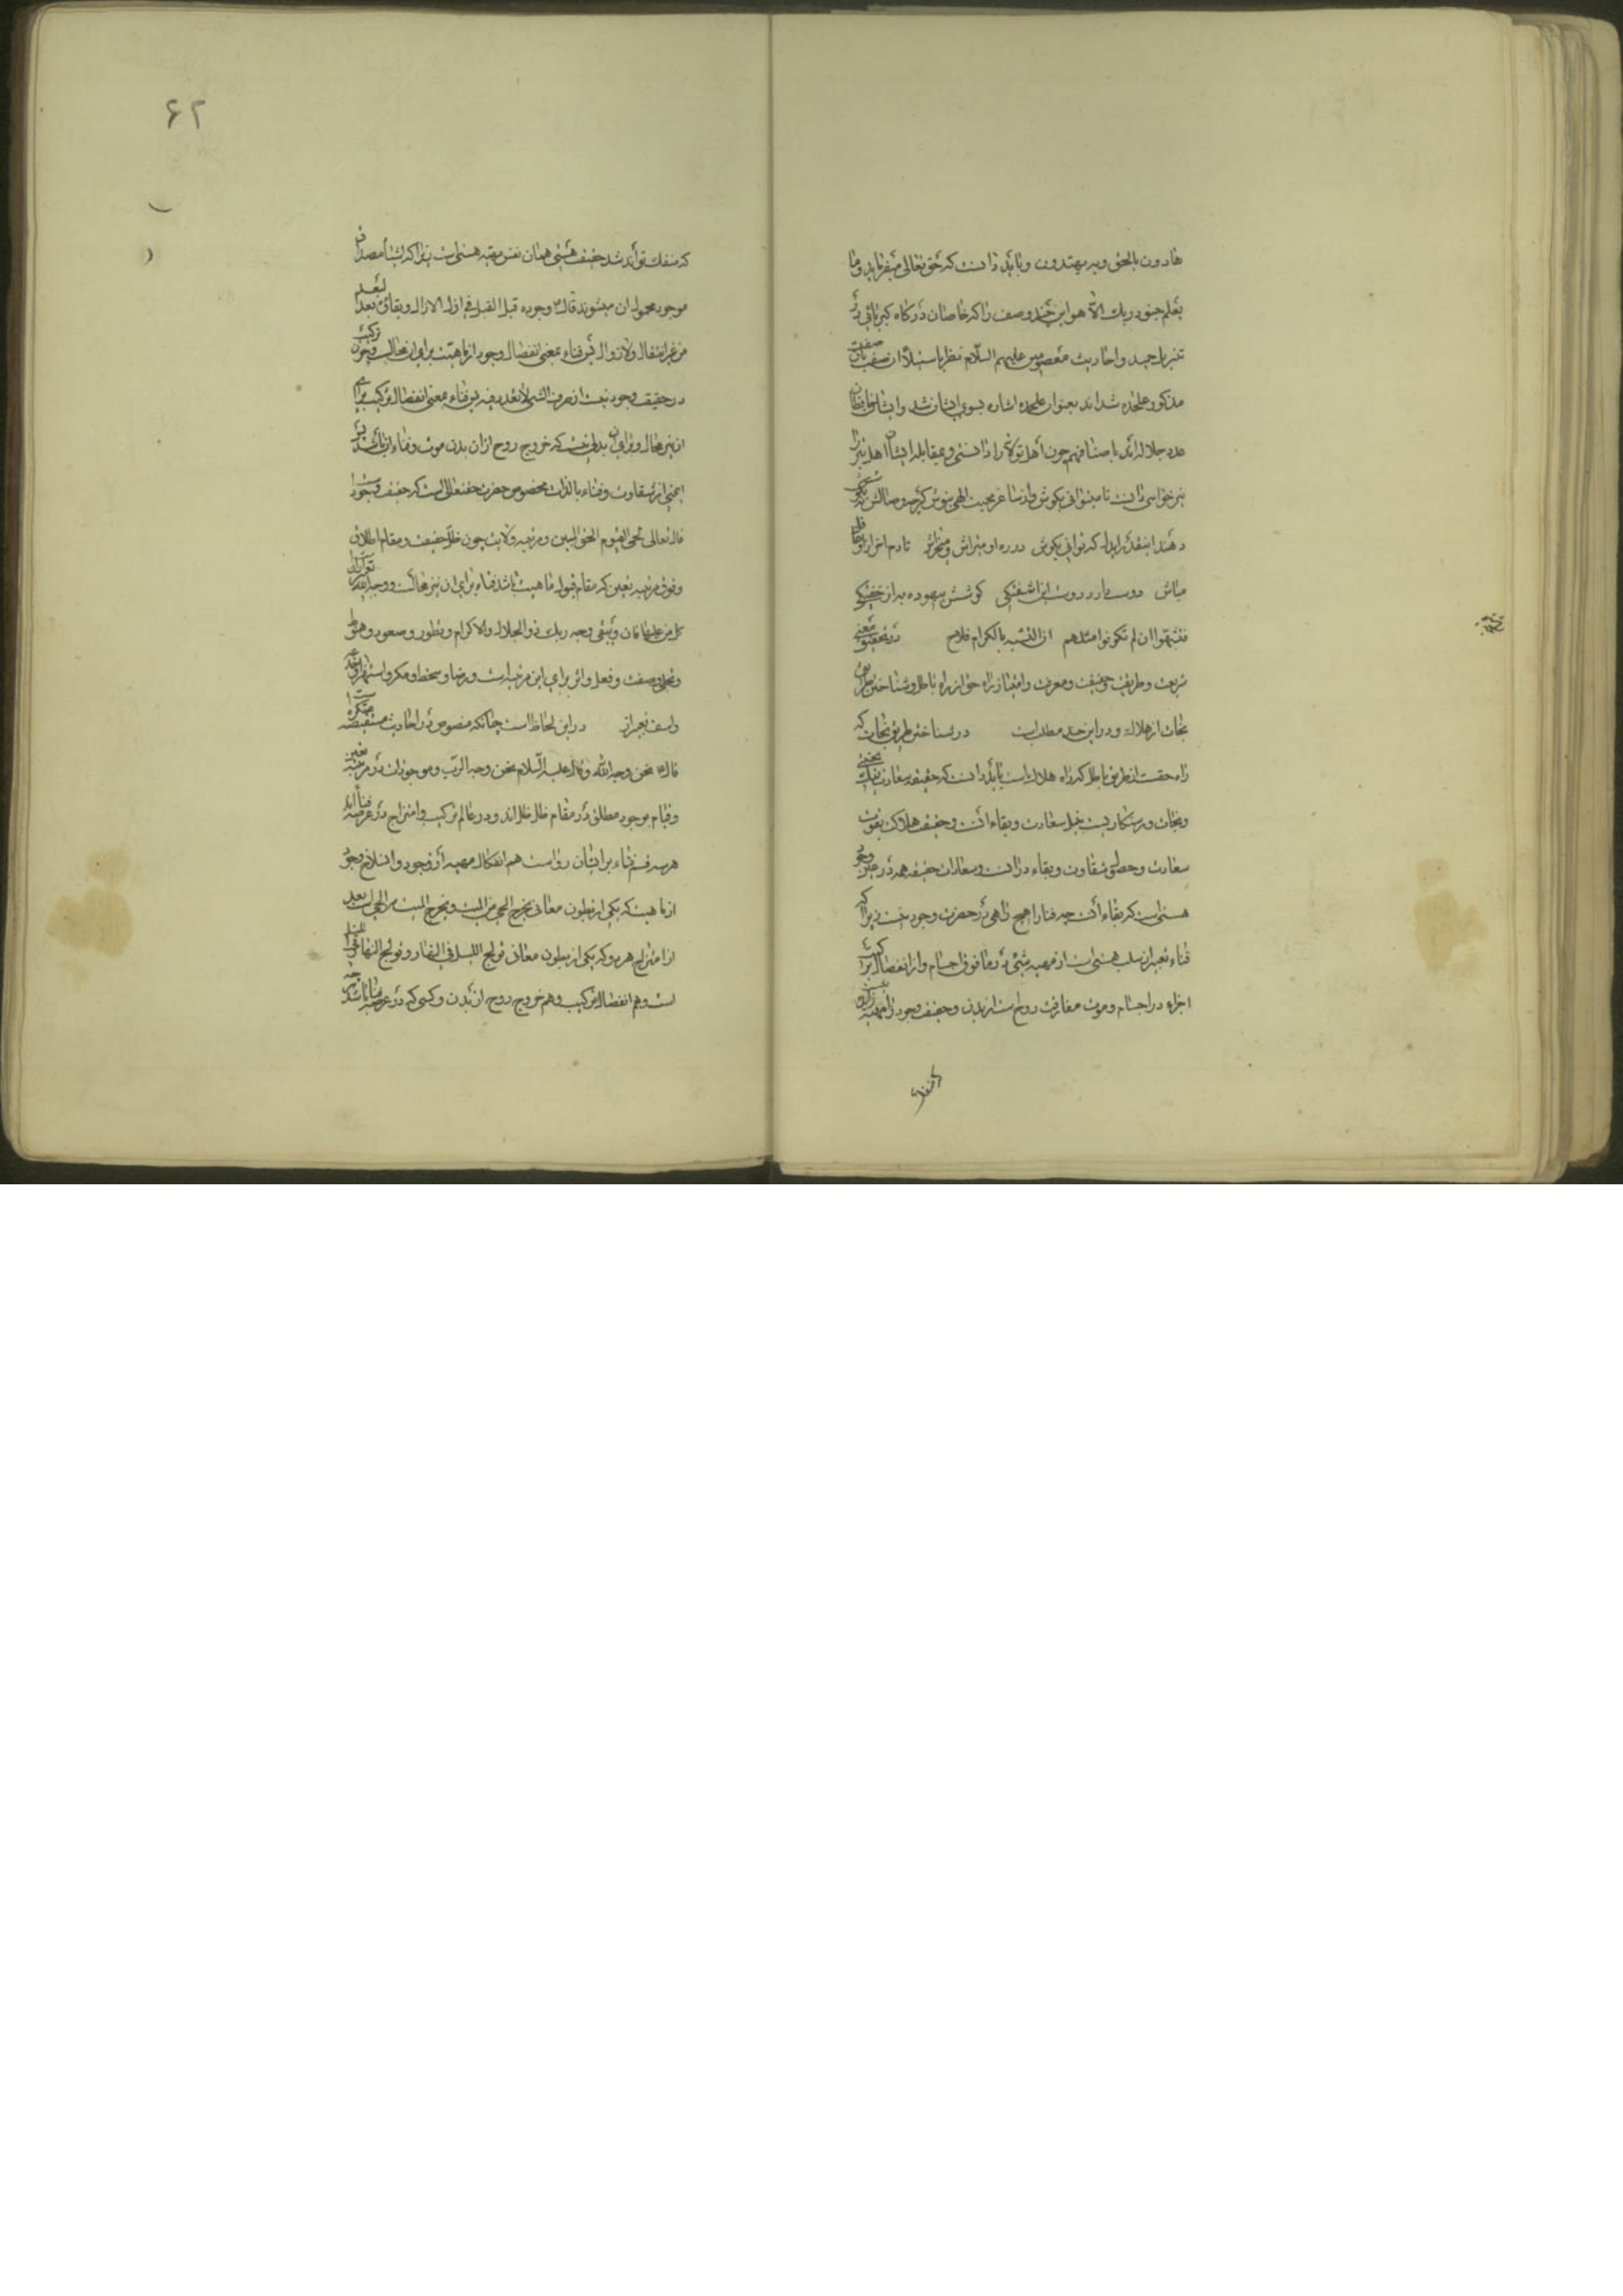 هادون بالحق وبه یهتدون و باید دانست که حق تعالی میفرماید وما
یعلم جنود ربك الا هو این چند وصف را که خاصان درگاه کبریائی در
تنزیل مجید و احادیث معصومین علیهم السلام نظر باستیلاء آن صفت
مذکور علیحده شده اند بعنوان علیحده اشاره بسوی ایشان شد وایشان
جلال اند باصنافهم چون اهل تولا را دانستی و بمقابله ایشان اهل تبرا
نیز خواهی دانست تا میتوانی بکوش
دهند اینقدر ای دل که توانی بکوش در ره او میتراش و میخراش تا دم آخر
مباش دوست دارد دوست این آشفتگی کوشش بیهوده به از خفتگی
فتشبهوا ان لم تکونوا مثلهم ان التشبه بالکرام فلاح در تحقیق معنی
شریعت وطریقت وحقیقت ومعرفت وامتیاز راه حق از راه باطل وشناختن طریق
نجات از هلاك ودر این چند مطلب است در شناختن طریق نجات که
راه حقست از طریق باطل که راه هلاك است باید دانست که حقیقت سعادت
ونجات ورستکاریست سعادت وبقاء است وحقیقت هلاکت بفوت
سعادت وحصول شقاوت وبقاء دانست وسعادات حقیقه همه در وجود
هستی است که بقاء است چه فنا را هیچ راهی در حضرت وجود نیست زیرا که
فناء تعبیر از سلب هستی است از مهیه شئی در مافوق اجسام واز انفصال ترکیب
اجزاء در اجسام وموت مفارقت روح است از بدن وحقیقت وجود را مهیه
که منفك تواند شد حقیقت هستی همان نفس مهیه هستی است
موجود محمول ان میشوند قال وجوده قبل القبل فی ازل الازال وبقائه بعد البعد
من غیر انتقال ولا زوال پس فناء بمعنی انفصال وجود از ماهیت برای ان محالست وچون ترکیب
در حقیقت وجود نیست از صرف الشئ لا تعدد فیه پس فناء بمعنی انفصال ترکیب برای
ان نیز محال وبرای ان بدنی نیست که خروج روح از ان بدن موت وفناء ان باشد پس
ایمنی از شقاوت وفناء بالذات مخصوص حضرت حقتعالی است که حقیقت وجود است
قال تعالی الحی القیوم الحق المبین ومرتبه ولایت چون ظل حقیقت ومقام اطلاق
وفوق مرتبه تعین که مقام قبول ماهیت باشد فناء برای ان نیز محالست ووجه الله
کل من علیها فان ویبقی وجه ربك ذو الجلال والاکرام وظهور وصعود وهبوط
وتجلی وصفت وفعل واثر برای این مرتبه است ورضا وسخط ومکر واستهزاء
واسف تعبیر از در این لحاظ است چنانکه منصوص در احادیث مستفیضه
قال ع نحن وجه الله وقال علیه السلام نحن وجه الرب وموجودات در مرتبه تعین
وقیام بوجود مطلق در مقام ظل ظل اند ودر عالم ترکیب وامتزاج در عرضه فنا اند
هر سه قسم فناء بر ایشان رواست هم انفکاك مهیه از وجود وانسلاخ وجود
از ماهیت که یکی از بطون معانی یخرج الحی من المیت ویخرج المیت من الحی است بعد
از امتزاج هر دو که یکی از بطون معانی تولج اللیل فی النهار وتولج النهار فی اللیل
است وهم انفصال ترکیب وهم خروج روح از بدن وکسی که در عرضه فنا باشد
۶۲